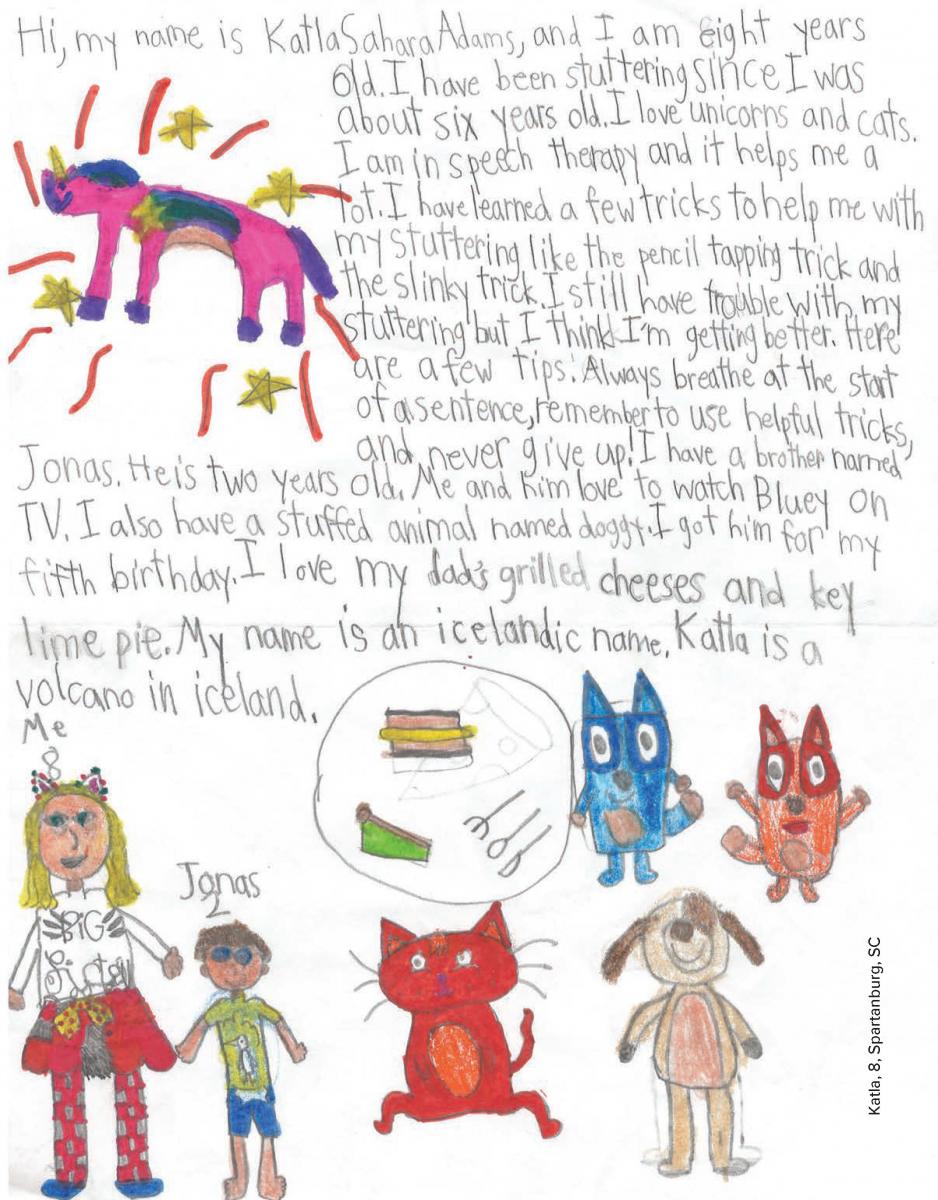 Hi, my name is Katla Sahara Adams, and I am eight years
old. I have been stuttering since I was
about six years old. I love unicorns and cats.
I am in speech therapy and it helps me a
lot. I have learned a few tricks to help me with
my stuttering like the pencil tapping trick and
the slinky trick. I still have trouble with my
stuttering but I think I'm getting better. Here
are a few tips: Always breathe at the start
of a sentence, remember to use helpful tricks,
and never give up! I have a brother named
Jonas. He is two years old. Me and him love to watch Bluey on
TV. I also have a stuffed animal named doggy. I got him for my
fifth birthday. I love my dad's grilled cheeses and key
lime pie. My name is an icelandic name. Katla is a
volcano in iceland.
Me
8
Jonas
2
BiG
Sister
Katla, 8, Spartanburg, SC